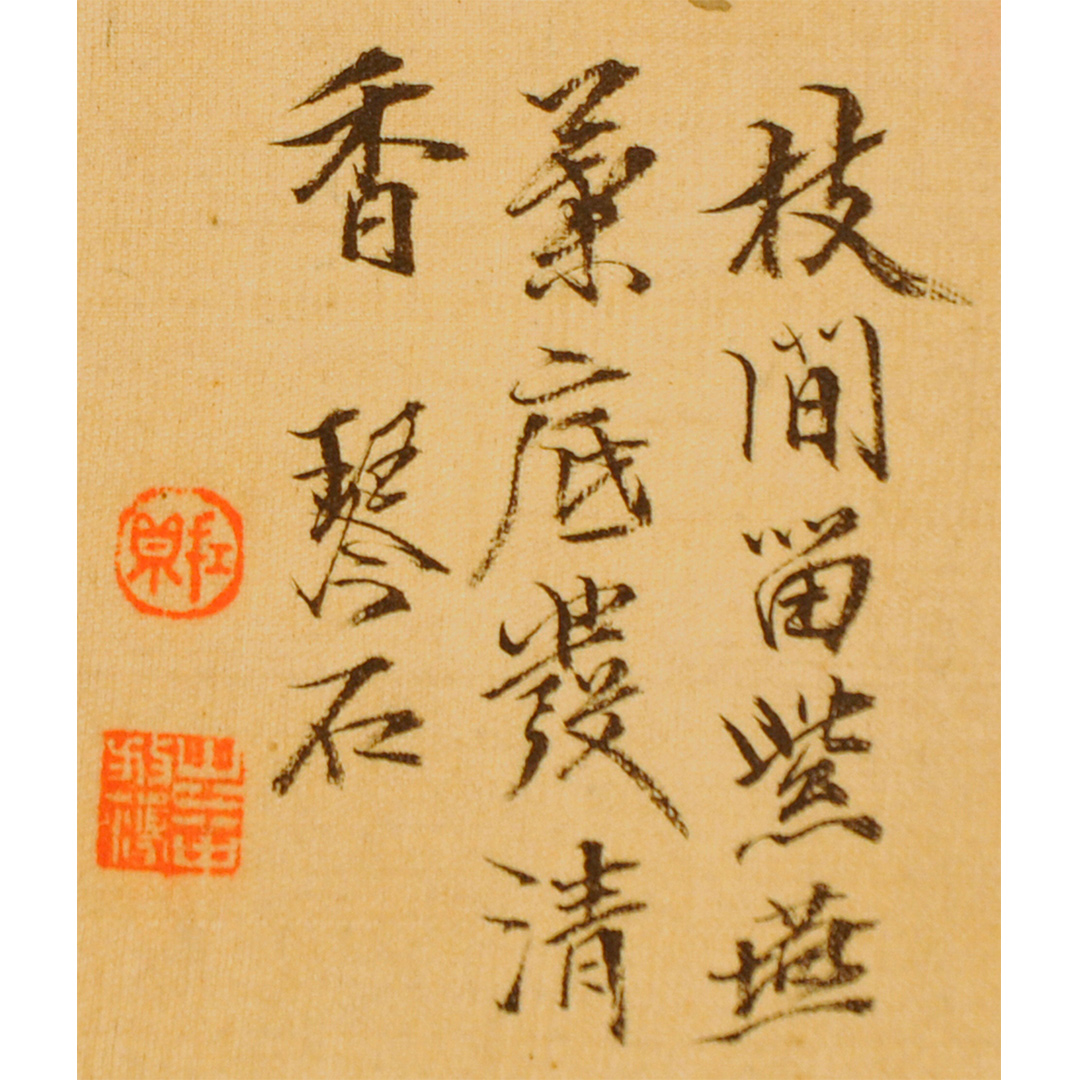 枝間留紫燕
葉底發清
香 琴石